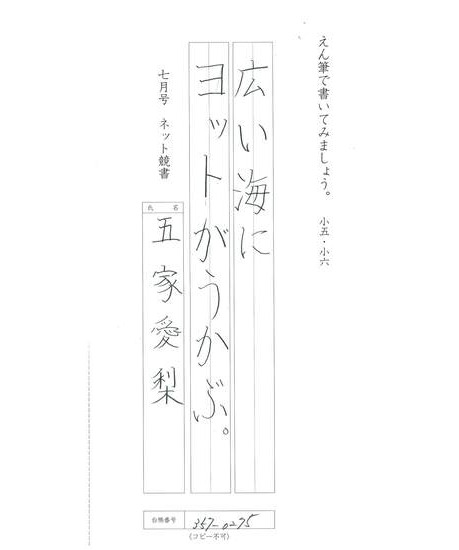 えん筆で書いてみましょう。 小五・小六
広い海に
ヨットがうかぶ。
七月号 ネット競書
氏名
五家愛梨
会員番号 357-0275
(コピー不可)